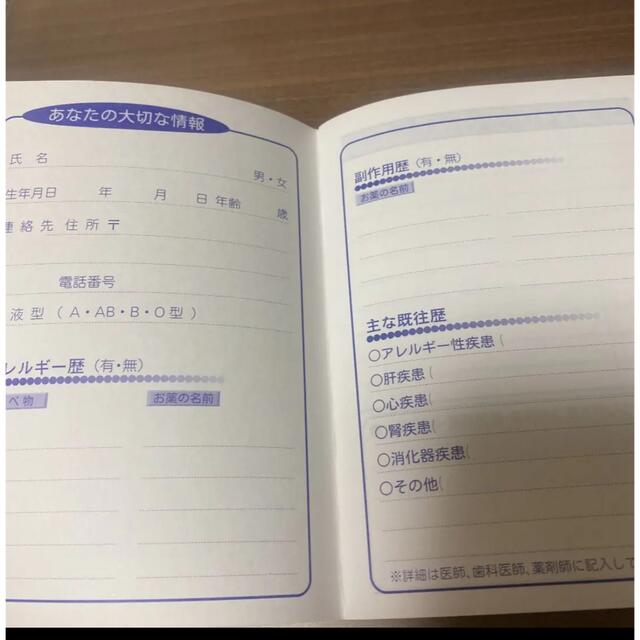 あなたの大切な情報
氏 名 男・女
生年月日 年 月 日 年齢 歳
連 絡 先 住 所 〒
電話番号
液 型 ( A・AB・B・O型 )
レルギー歴 (有・無)
べ 物 お薬の名前
副作用歴 (有・無)
お薬の名前
主な既往歴
○アレルギー性疾患(
○肝疾患(
○心疾患(
○腎疾患(
○消化器疾患(
○その他(
※詳細は医師、歯科医師、薬剤師に記入して